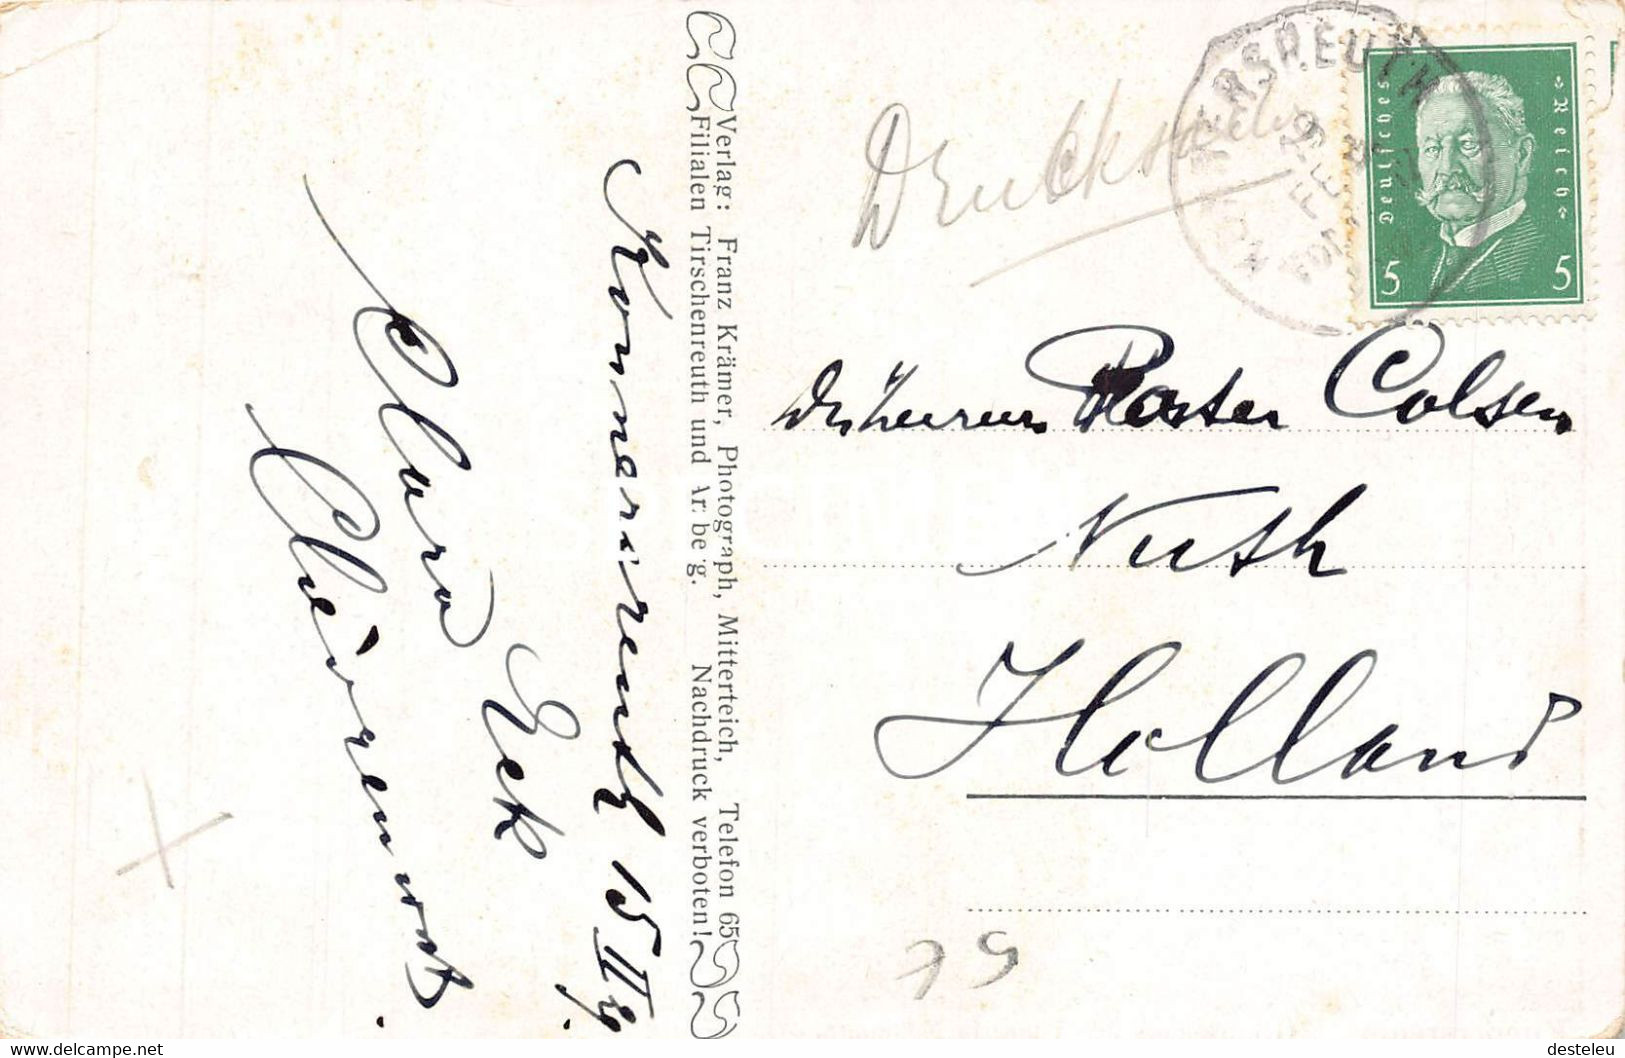 Verlag: Franz Krämer, Photograph, Mitterteich, Telefon 65
Filialen Tirschenreuth und Arzberg. Nachdruck verboten!
Konnersreuth 15 II
Clara Eck
Drucksache
Deutsches Reich
5 5
Pastor Colsen
Nuth
Holland
79
delcampe.net
desteleu